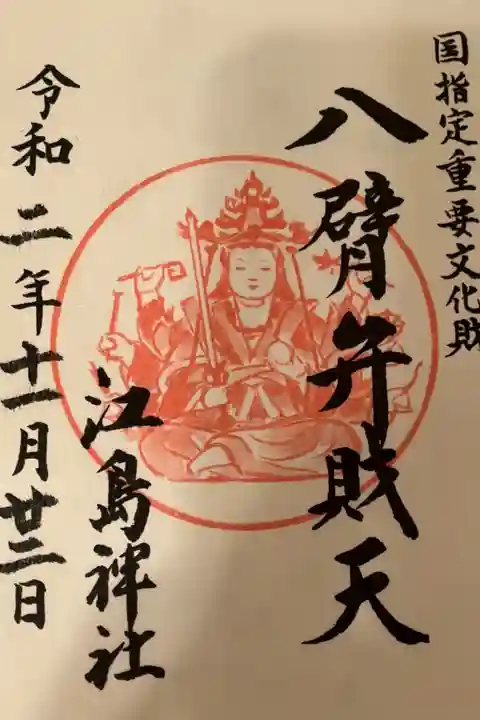 国指定重要文化財
八臂弁財天
江島神社
令和二年十一月廿三日